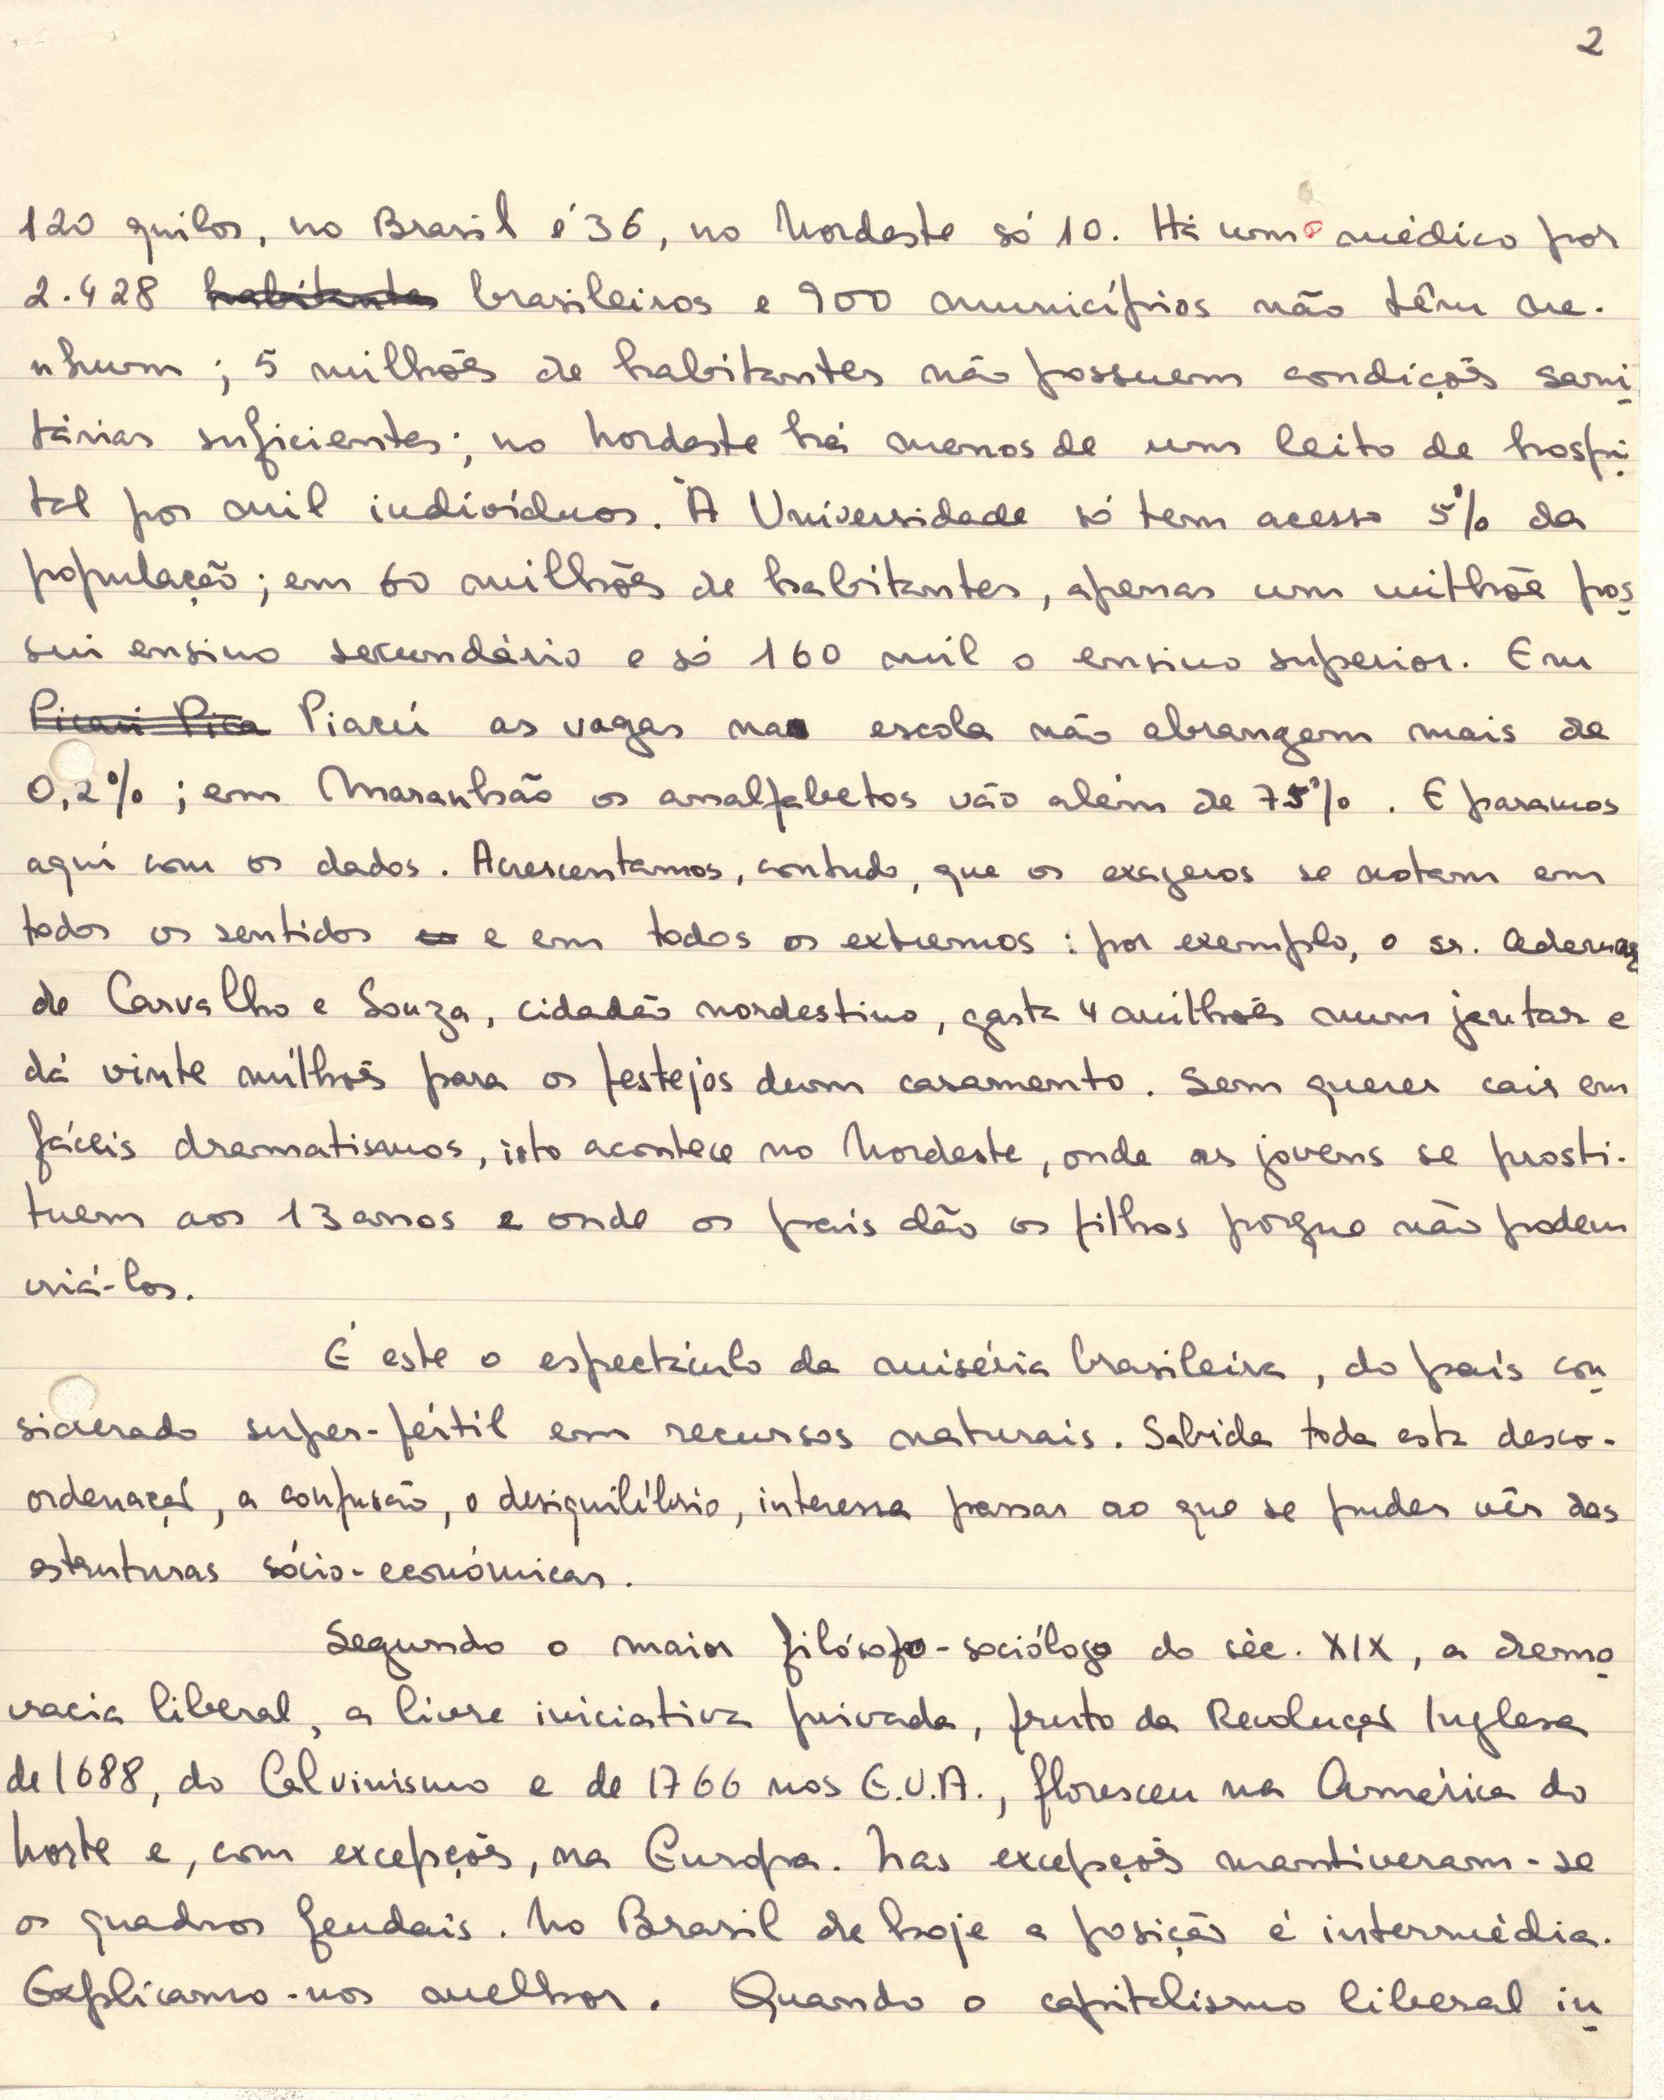 2
120 quilos, no Brasil é 36, no Nordeste só 10. Há um médico por
2.428 habitantes brasileiros e 900 municípios não têm ne-
nhum; 5 milhões de habitantes não possuem condições sani
tárias suficientes; no Nordeste há menos de um leito de hospi
tal por mil indivíduos. À Universidade só tem acesso 5% da
população; em 60 milhões de habitantes, apenas um milhõe pos
sui ensino secundário e só 160 mil o ensino superior. Em
Picaui Pica Piaruí as vagas na escola não abrangem mais de
0,2%; em Maranhão os analfabetos vão além de 75%. E paramos
aqui com os dados. Acrescentamos, contudo, que os exageros se notam em
todos os sentidos e em todos os extremos: por exemplo, o sr.
de Carvalho e Souza, cidadão nordestino, gasta 4 milhões num jantar e
dá vinte milhões para os festejos dum casamento. Sem querer cair em
fáceis dramatismos, isto acontece no Nordeste, onde as jovens se prosti-
tuem aos 13 anos e onde os pais dão os filhos porque não podem
criá-los.
É este o espectáculo da miséria brasileira, do país con
siderado super-fértil em recursos naturais. Sabida toda esta desco-
ordenação, a confusão, o desiquilíbrio, interessa passar ao que se puder vêr das
estruturas sócio-económicas.
Segundo o maior filósofo-sociólogo do séc. XIX, a demo
cracia liberal, a livre iniciativa privada, fruto da Revolução Inglesa
de 1688, do Calvinismo e de 1766 nos E.U.A., floresceu na América do
Norte e, com excepções, na Europa. Nas excepções mantiveram-se
os quadros feudais. No Brasil de hoje a posição é intermédia.
Explicamo-nos melhor. Quando o capitalismo liberal in